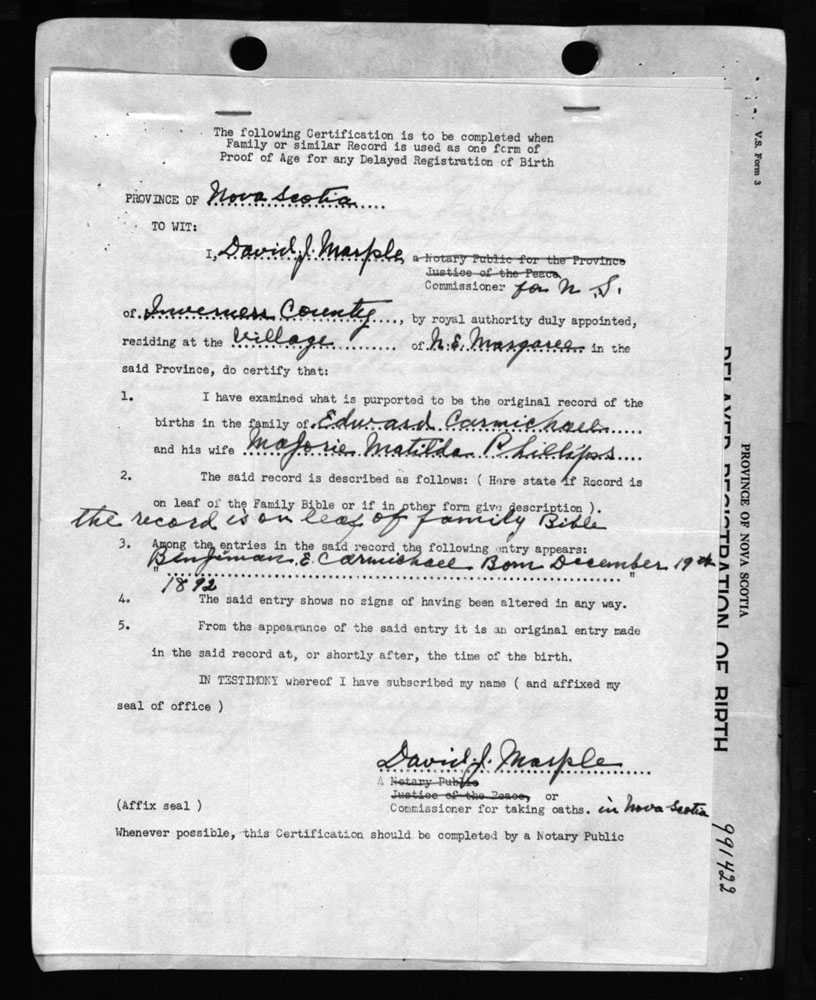 The following Certification is to be completed when
Family or similar Record is used as one form of
Proof of Age for any Delayed Registration of Birth
PROVINCE OF Nova Scotia
TO WIT:
I, David J. Marple, a Notary Public for the Province
Justice of the Peace,
Commissioner for N. S.
of Inverness County, by royal authority duly appointed,
residing at the Village of N.E. Margaree in the
said Province, do certify that:
1. I have examined what is purported to be the original record of the
births in the family of Edward Carmichael
and his wife Majorie Matilda Phillips
2. The said record is described as follows: ( Here state if Record is
on leaf of the Family Bible or if in other form give description ).
the record is on leaf of family Bible
3. Among the entries in the said record the following entry appears:
"Benjiman E. Carmichael Born December 19th"
1892
4. The said entry shows no signs of having been altered in any way.
5. From the appearance of the said entry it is an original entry made
in the said record at, or shortly after, the time of the birth.
IN TESTIMONY whereof I have subscribed my name ( and affixed my
seal of office )
David J. Marple
A Notary Public
Justice of the Peace, or
(Affix seal ) Commissioner for taking oaths. in Nova Scotia
Whenever possible, this Certification should be completed by a Notary Public
V.S. Form 3
PROVINCE OF NOVA SCOTIA
DELAYED REGISTRATION OF BIRTH
991422